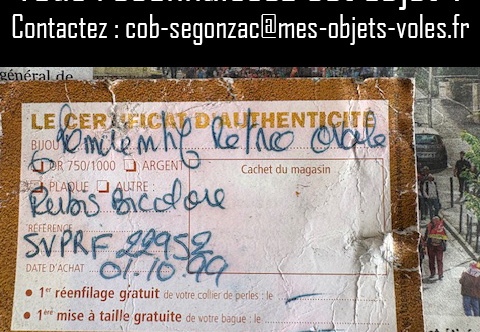 Contactez : cob-segonzac@mes-objets-voles.fr
général de
LE CERTIFICAT D'AUTHENTICITÉ
BIJOU
OR 750/1000 ARGENT
Cachet du magasin
PLAQUÉ AUTRE :
Rubis Bicolore
RÉFÉRENCE
SVPRF 22952
DATE D'ACHAT 01.10.99
• 1er réenfilage gratuit de votre collier de perles : le
• 1ère mise à taille gratuite de votre bague : le